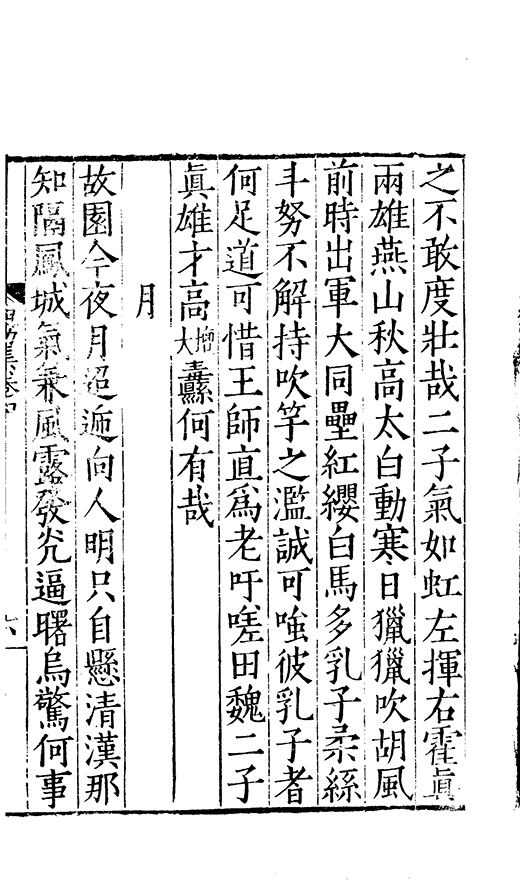 之不敢度壯哉二子氣如虹左揮右霍眞
兩雄燕山秋高太白動寒日獵獵吹胡風
前時出軍大同壘紅纓白馬多乳子柔絲
斗努不解持吹竽之濫誠可嗤彼乳子者
何足道可惜王師直爲老吁嗟田魏二子
眞雄才高牙大纛何有哉
月
故園今夜月迢遞向人明只自懸清漢那
知隔鳳城氣兼風露發光逼曙烏驚何事